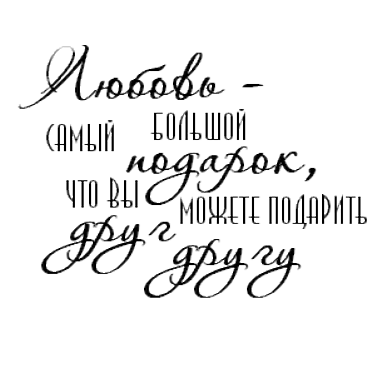 Любовь -
САМЫЙ БОЛЬШОЙ
подарок,
ЧТО ВЫ МОЖЕТЕ ПОДАРИТЬ
друг
другу